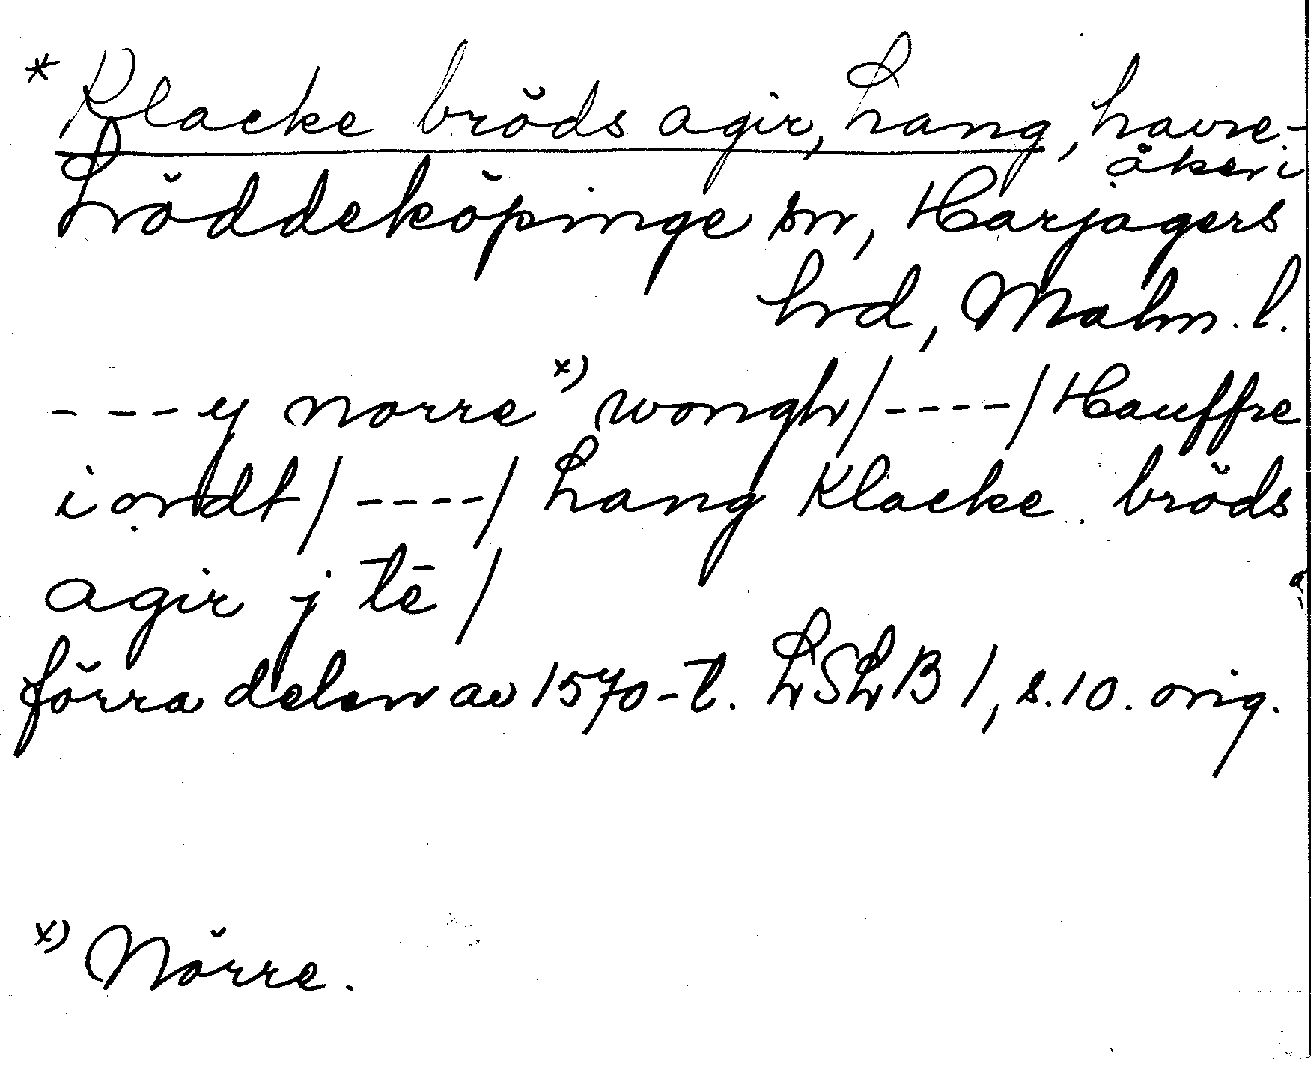 * Klacke bröds agir, Lang, havre-
åker i
Löddeköpinge sn, Harjagers
hrd, Malm. l.
---y norre x) wongh/----/Hauffre
iordt/----/Lang Klacke bröds
agir j tē/
förra delen av 1570-t. LSLB 1, s. 10. orig.
x) Nörre.